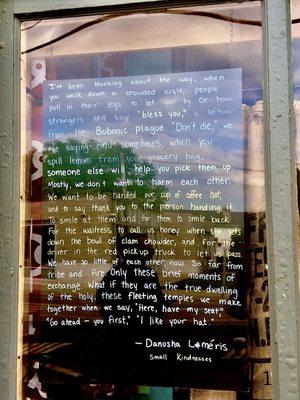 I've been thinking about the way, when
you walk down a crowded aisle, people
pull in their legs to let you by. Or how
strangers still say "bless you," a leftover
from the Bubonic plague. "Don't die," we
are saying. And sometimes, when you
spill lemons from your grocery bag,
someone else will help you pick them up
Mostly, we don't want to harm each other.
We want to be handed our cup of coffee hot,
and to say thank you to the person handing it.
To smile at them and for them to smile back.
For the waitress to call us honey when she sets
down the bowl of clam chowder, and for the
driver in the red pick-up truck to let us pass.
We have so little of each other, now. So far from
tribe and fire. Only these brief moments of
exchange. What if they are the true dwelling
of the holy, these fleeting temples we make
together when we say, "Here, have my seat,"
"Go ahead – you first," "I like your hat."
– Danusha Laméris
Small Kindnesses